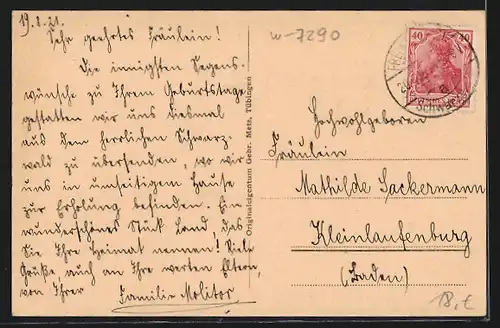 19.8.21.
Sehr geehrtes Fräulein!
Die innigsten Segens-
wünsche zu Ihrem Geburtstage
gestatten wir uns diesmal
aus dem herrlichen Schwarz-
wald zu übersenden, wo wir
uns in umseitigem Hause
zur Erholung befinden. Ein
wunderschönes Stück Land, das
Sie Ihre Heimat nennen! Viele
Grüße, auch an Ihre werten Eltern,
von Ihrer
Familie Molitor
Originaleigentum Gebr. Metz, Tübingen
w-7290
40 40
Hochwohlgeboren
Fräulein
Mathilde Sackermann
Kleinlaufenburg
(Baden)
18,€